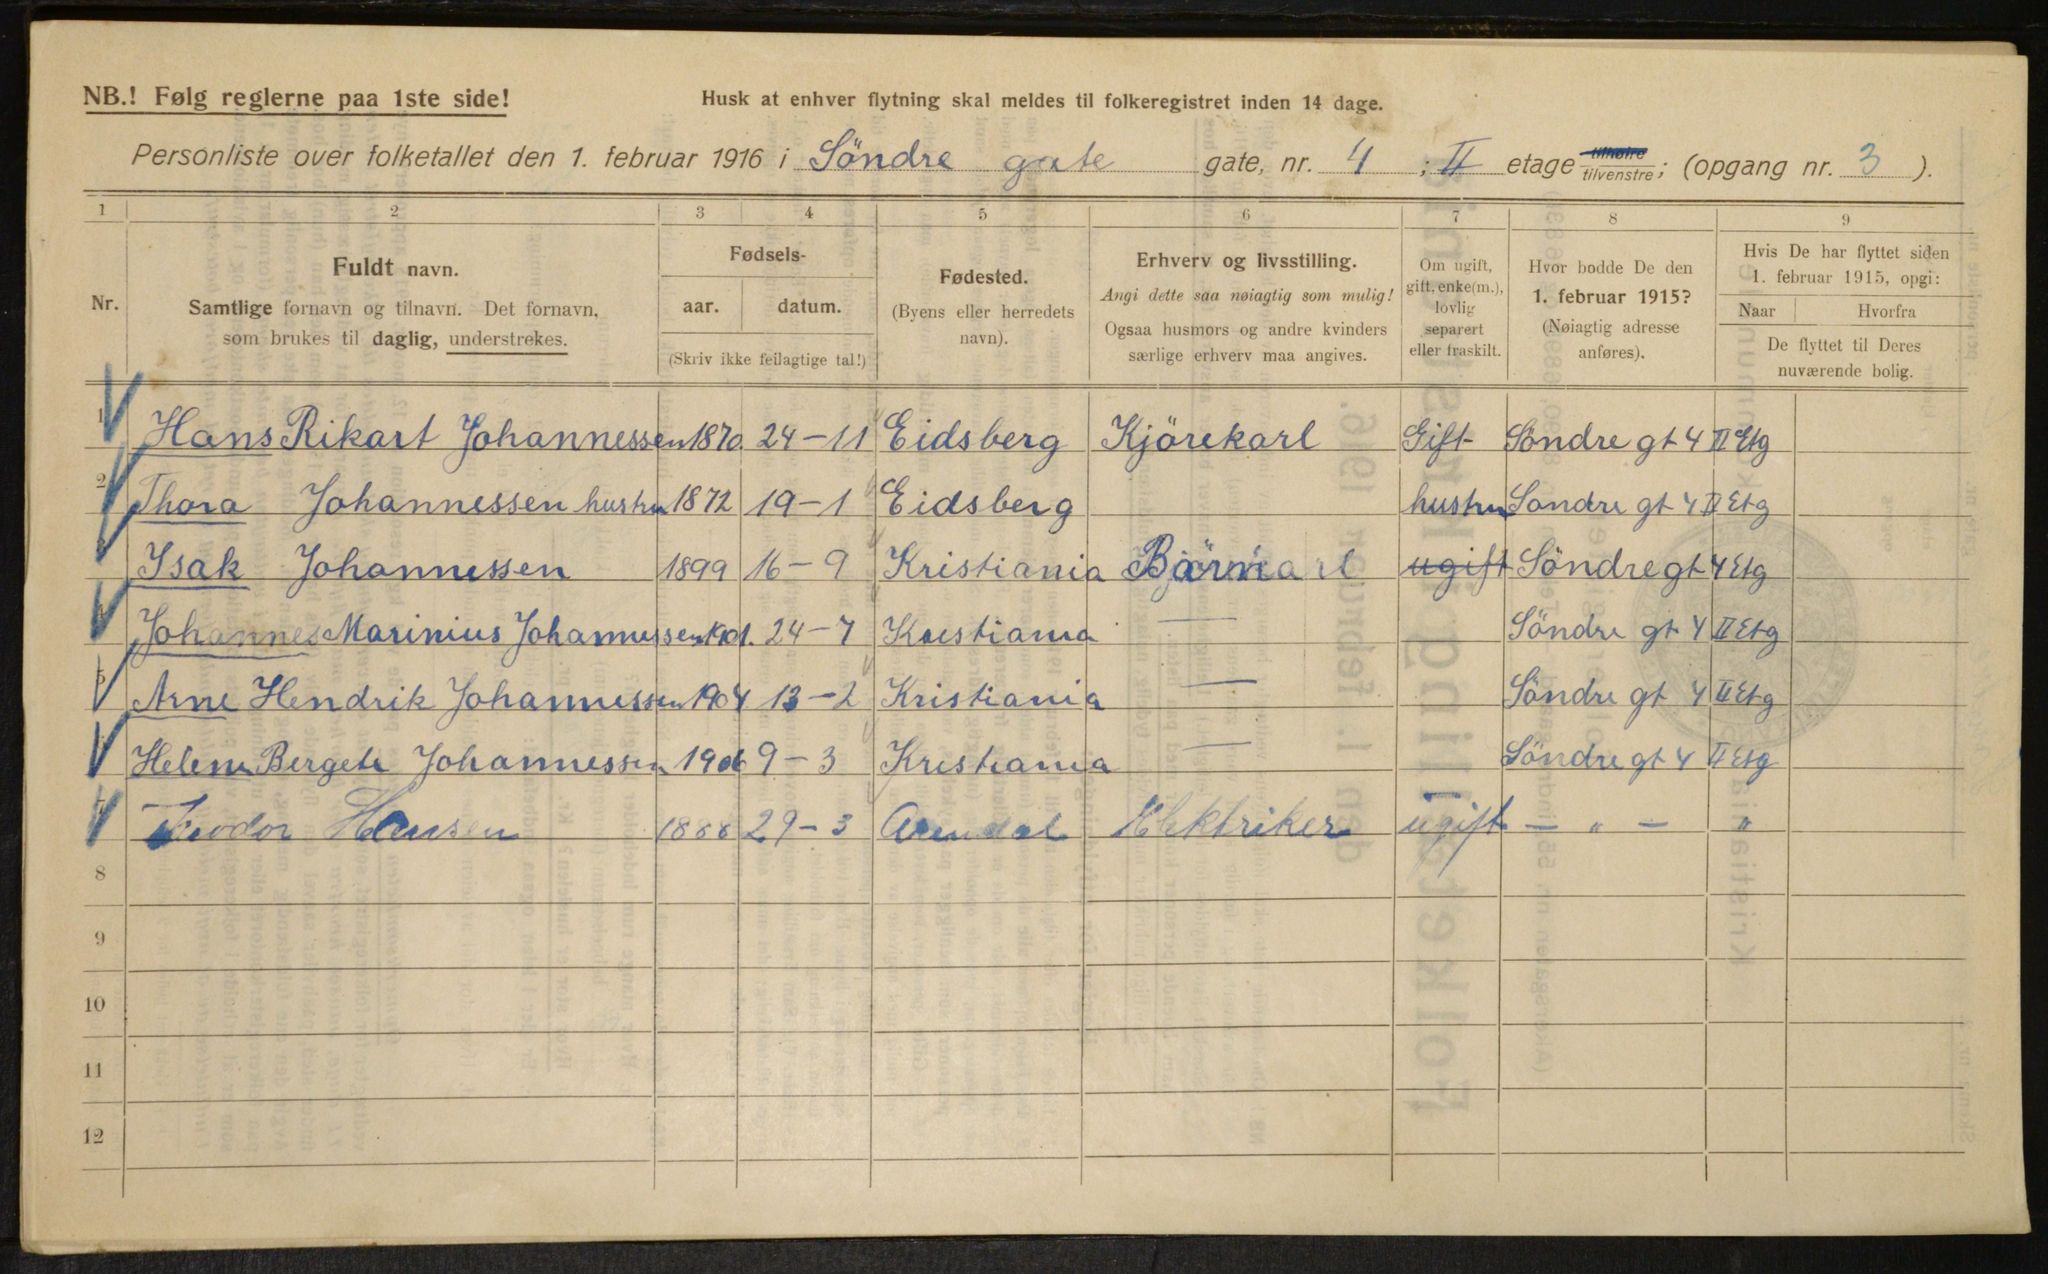 NB.! Følg reglerne paa 1ste side!
Husk at enhver flytning skal meldes til folkeregistret inden 14 dage.
Personliste over folketallet den 1. februar 1916 i Söndre gate gate, nr. 4 ; II etage tilhøire tilvenstre; (opgang nr. 3 ).
1 2 3 4 5 6 7 8 9
Nr.
Fuldt navn.
Samtlige fornavn og tilnavn. Det fornavn,
som brukes til daglig, understrekes.
Fødsels-
aar. datum.
(Skriv ikke feilagtige tal!)
Fødested.
(Byens eller herredets
navn).
Erhverv og livsstilling.
Angi dette saa nøiagtig som mulig!
Ogsaa husmors og andre kvinders
særlige erhverv maa angives.
Om ugift,
gift, enke(m.),
lovlig
separert
eller fraskilt.
Hvor bodde De den
1. februar 1915?
(Nøiagtig adresse
anføres).
Hvis De har flyttet siden
1. februar 1915, opgi:
Naar Hvorfra
De flyttet til Deres
nuværende bolig.
1 Hans Rikart Johannessen 1870 24-11 Eidsberg Kjörekarl Gift Söndre gt 4 II Etg
2 Thora Johannessen hustru 1872 19-1 Eidsberg hustru Sondre gt 4 II Etg
3 Isak Johannessen 1899 16-9 Kristiania ugift Söndre gt 4 Etg
4 Johannes Marinius Johannessen 1901. 24-7 Kristiania — Söndre gt 4 II Etg
5 Arne Hendrik Johannessen 1904 13-2 Kristiania — Söndre gt 4 II Etg
Helene Bergete Johannessen 1906 9-3 Kristiania — Söndre gt 4 II Etg
7 Teodor Hansen 1888 29-3 Arendal Elektriker ugift — „ — „
8
9
10
11
12